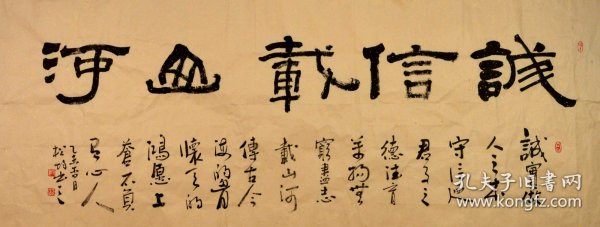 誠信載山河
誠實做
人之本
守信
君子之
德法育
萬物無
窮盡志
載山河
傳古今
海的胸
懷天的
鴻愿上
蒼不負
有心人
乙亥春月
書之
孔夫子旧书网
www.kongfz.com